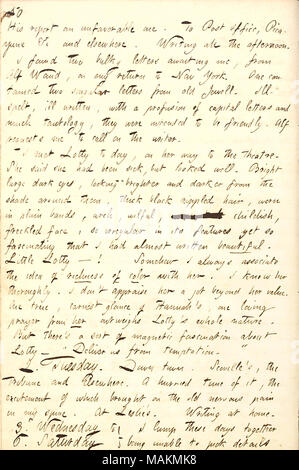 60
His report an unfavorable one. To Post Office, Pica-
yune Of. and elsewhere. Writing all the afternoon.
I found two bulky letters awaiting me, from
Alf Waud, on my return to New York. One con-
tained two singular letters from old Jewell. Ill
spelt, ill written, with a profusion of capital letters and
much tautology, they were intended to be friendly. Alf
requests me to call on the writer.
I met Lotty to day, on her way to the theatre.
She said she had been sick, but looked well. Bright
large dark eyes, looking brighter and darker from the
shade around them, thick black crappled hair, worn
in plain bands, arch, wilful, childish,
freckled face, so irregular in its features yet so
fascinating that I had almost written beautiful.
Little Lotty — ! Somehow I always associate
the idea of richness of color with her. I know her
thoroughly. I don't appraise her a jot beyond her value.
One true, earnest glance of Hannah's, one loving
prayer from her outweighs Lotty's whole nature.
But there's a sort of magnetic fascination about
Lotty — Deliver us from temptation.
7. Tuesday. Down town. Scoville's, the
Tribune and elsewhere. A hurried time of it, the
excitement of which brought on the old nervous pain
in my spine. At Leslie's. Writing at home.
8. Wednesday to I lump these days together
Saturday being unable to pick details
alamy
Image ID: MAKMK8
www.alamy.com